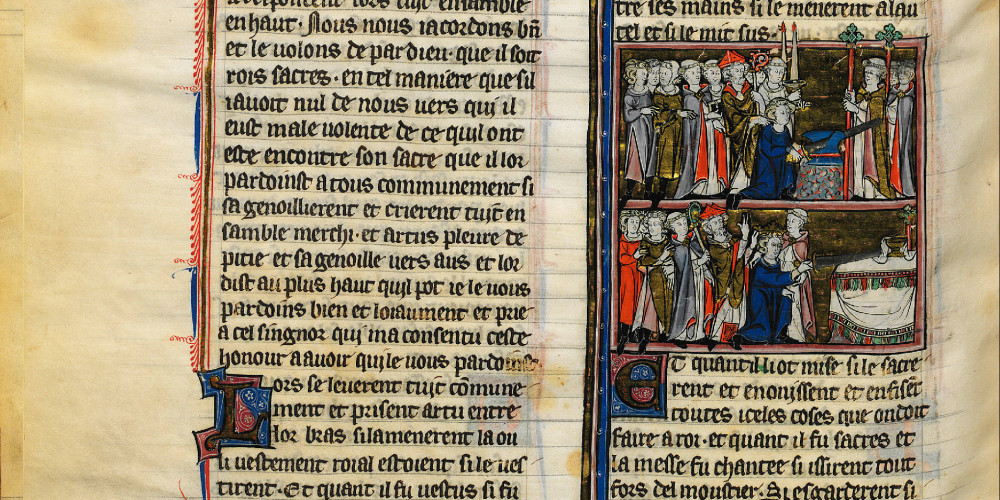 enhaut · Nous nous racordons bn̄
et le uolons de par dieu · que il soit
rois sacres · en tel maniere que sil
iauoit nul de nous uers qui il
eust male uolente de ce quil ont
este encontre son sacre que il lor
pardoinst a tous communement si
sa genoillierent et crierent tuit en
samble merchi · et artus pleure de
pitie et sa genoille uers aus et lor
dist au plus haut quil pot ie le uous
pardoins bien et loiaument et prie
a cel singnor qui ma consentu ceste
honour a auoir quil le uous pardoinst
Lors se leuerent tuit cōmune
ment et prisent artu entre
lor bras si lamenerent la ou
li uestement roial estoient si le ues
tirent · Et quant il fu uestus si fu
tre ses mains si le menerent a lau
tel et si le mit sus ·
Et quant il li ot mise si le sacre
rent et enoinssent et enfisēt
toutes iceles coses que on doit
faire a roi · et quant il fu sacres et
la messe fu chantee si issirent tout
fors del moustier · Si esgarderent si